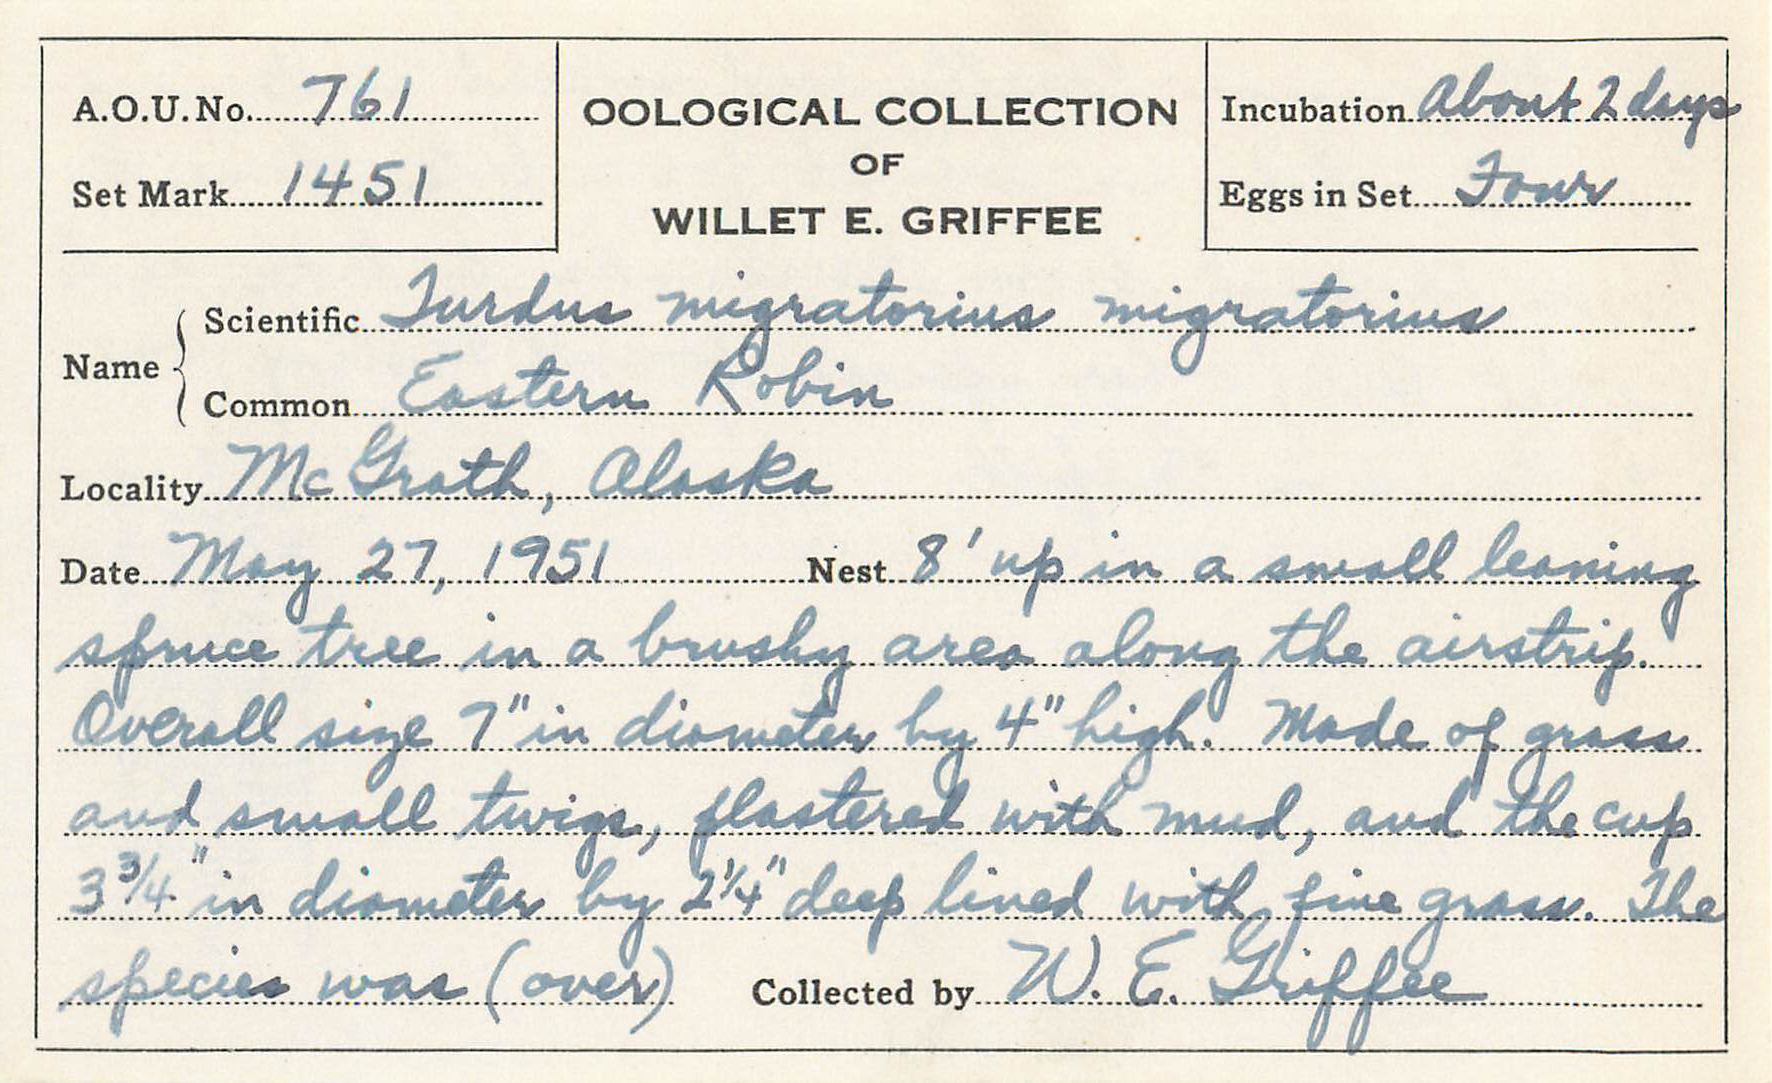 A.O.U. No. 761
Set Mark 1451
OOLOGICAL COLLECTION
OF
WILLET E. GRIFFEE
Incubation About 2 days
Eggs in Set Four
Name
Scientific Turdus migratorius migratorius
Common Eastern Robin
Locality McGrath, Alaska
Date May 27, 1951 Nest 8' up in a small leaning
spruce tree in a brushy area along the airstrip.
Overall size 7" in diameter by 4" high. Made of grass
and small twigs, plastered with mud, and the cup
3 3/4" in diameter by 2 1/4" deep lined with fine grass. The
species was (over) Collected by W. E. Griffee